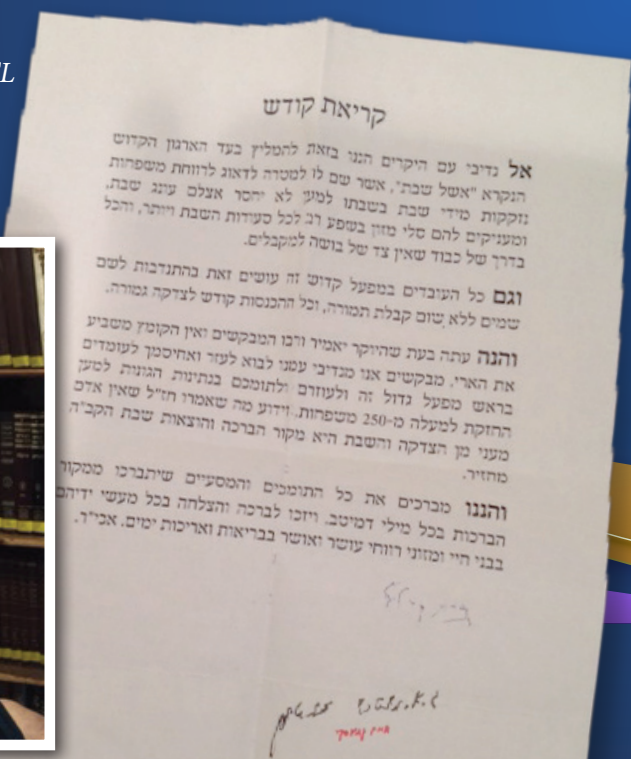 L
קריאת קודש
אל נדיבי עם היקרים הננו בזאת להמליץ בעד הארגון הקדוש
הנקרא "אשל שבת", אשר שם לו למטרה לדאוג לרווחת משפחות
נזקקות מידי שבת בשבתו למען לא יחסר אצלם עינג שבת,
ומעניקים להם סלי מזון בשפע רב לכל סעודות השבת ויותר, והכל
בדרך של כבוד שאין צד של בושה למקבלים.
וגם כל העובדים במפעל קדוש זה עושים זאת בהתנדבות לשם
שמים ללא שום קבלת תמורה, וכל ההכנסות קודש לצדקה גמורה.
והנה עתה בעת שהיוקר יאמיר ורבו המבקשים ואין הקומץ משביע
את הארי, מבקשים אנו מנדיבי עמנו לבוא לעזר ואחיסמך לעומדים
בראש מפעל גדול זה ולעוזרם ולתומכם בנתינות הגונות למען
החזקת למעלה מ-250 משפחות. וידוע מה שאמרו חז"ל שאין אדם
מעני מן הצדקה והשבת היא מקור הברכה והוצאות שבת הקב"ה
מחזיר.
והננו מברכים את כל התומכים והמסעיים שיתברכו ממקור
הברכות בכל מילי דמיטב, ויזכו לברכה והצלחה בכל מעשי ידיהם
בבני חיי ומזוני רווחי עושר ואושר בבריאות ואריכות ימים. אכי"ר.